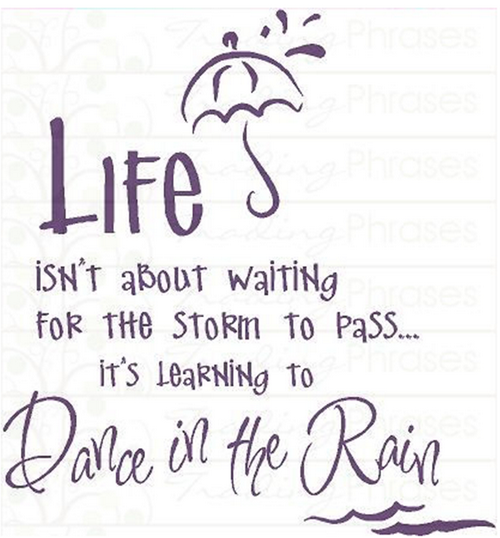 Life
isn't about waiting
for the storm to pass...
it's learning to
Dance in the Rain
Trading Phrases
Trading Phrases
Trading Phrases
Trading Phrases
Trading Phrases
Trading Phrases
Trading Phrases
Trading Phrases